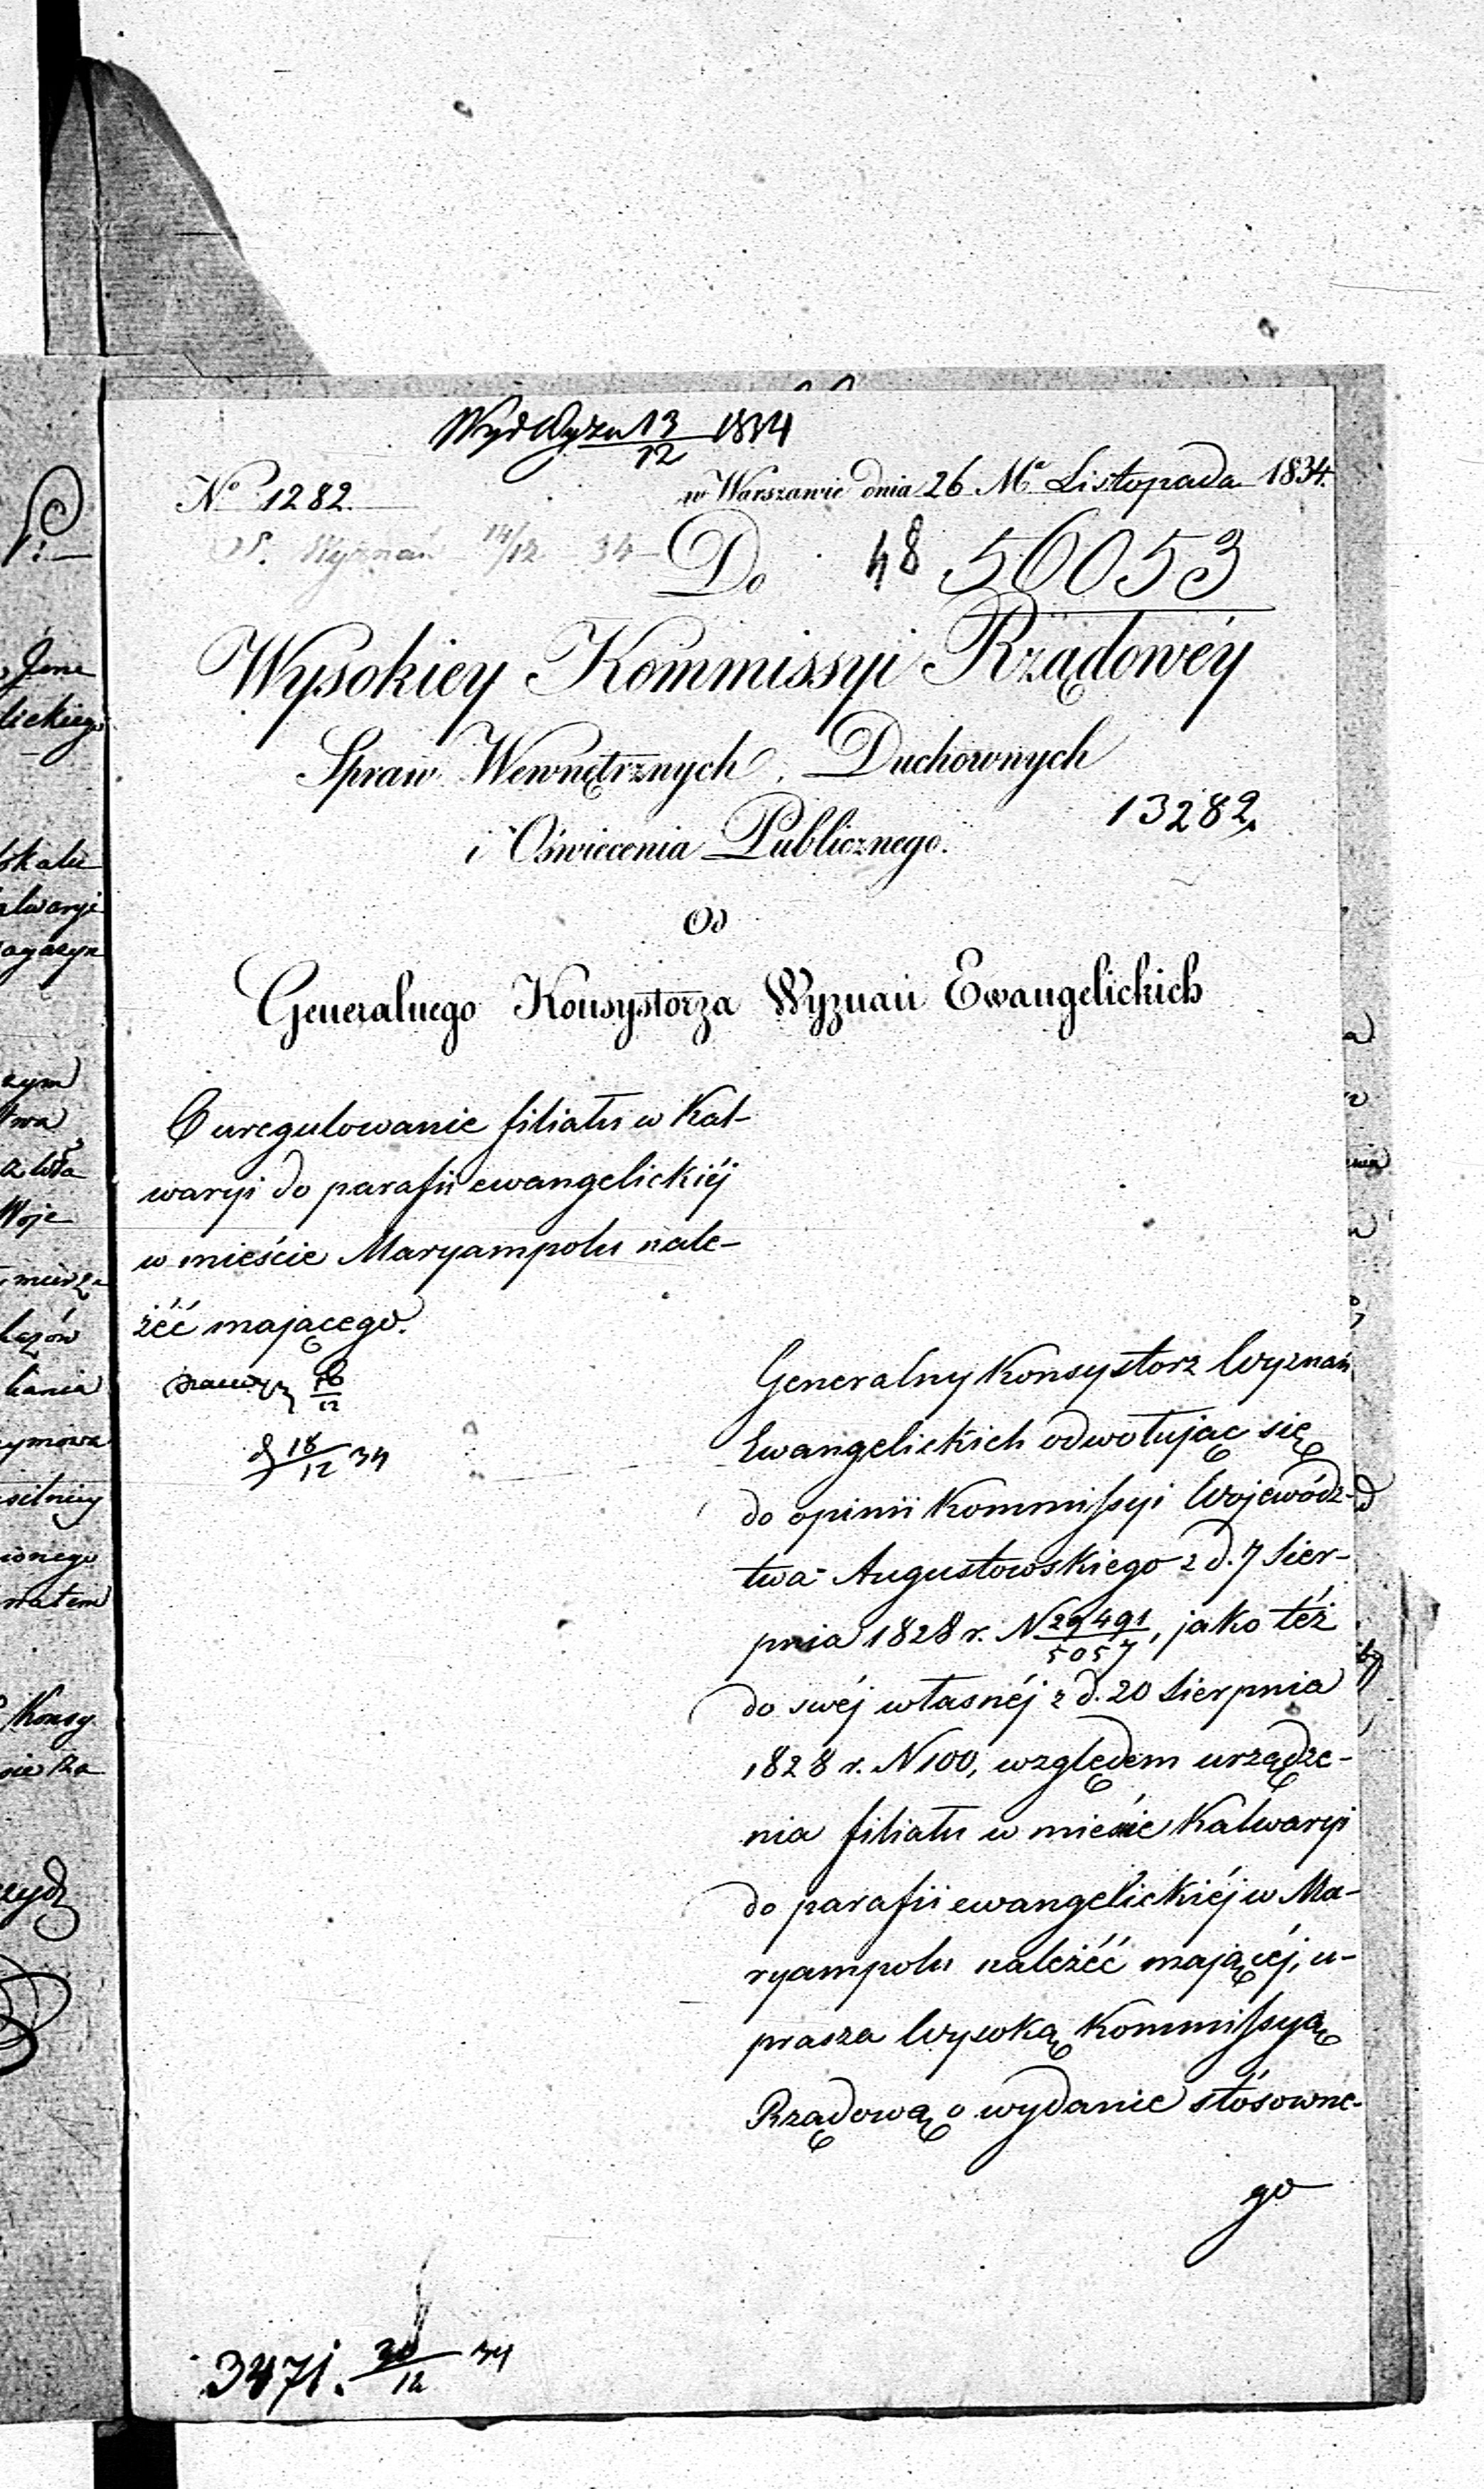 13/12 1834
No 1282.
w Warszawie dnia 26 Ma Listopada 1834.
Wyznań 14/12 34
Do
48 56053
Wysokiey Kommissyi Rządowéy
Spraw Wewnętrznych, Duchownych
13282.
i Oświecenia Publicznego.
Od
Generalnego Konsystorza Wyznań Ewangelickich
O uregulowanie filiału w Kal-
waryi do parafii ewangelickiéj
w mieście Maryampolu nale-
żéć mającego.
18/12 34
Generalny Konsystorz Wyznań
Ewangelickich odwołując się
do opinii Kommissyi Wojewódz-
twa Augustowskiego z d. 7 Sier-
pnia 1828 r. N 29491/5057, jako téż
do swéj własnéj z d. 20 Sierpnia
1828 r. N 100, względem urządze-
nia filiału w mieście Kalwaryi
do parafii ewangelickiéj w Ma-
ryampolu należéć mającéj, u-
prasza Wysoką Kommissyą
Rządową o wydanie stósowne-
go
3471. 20/12 34